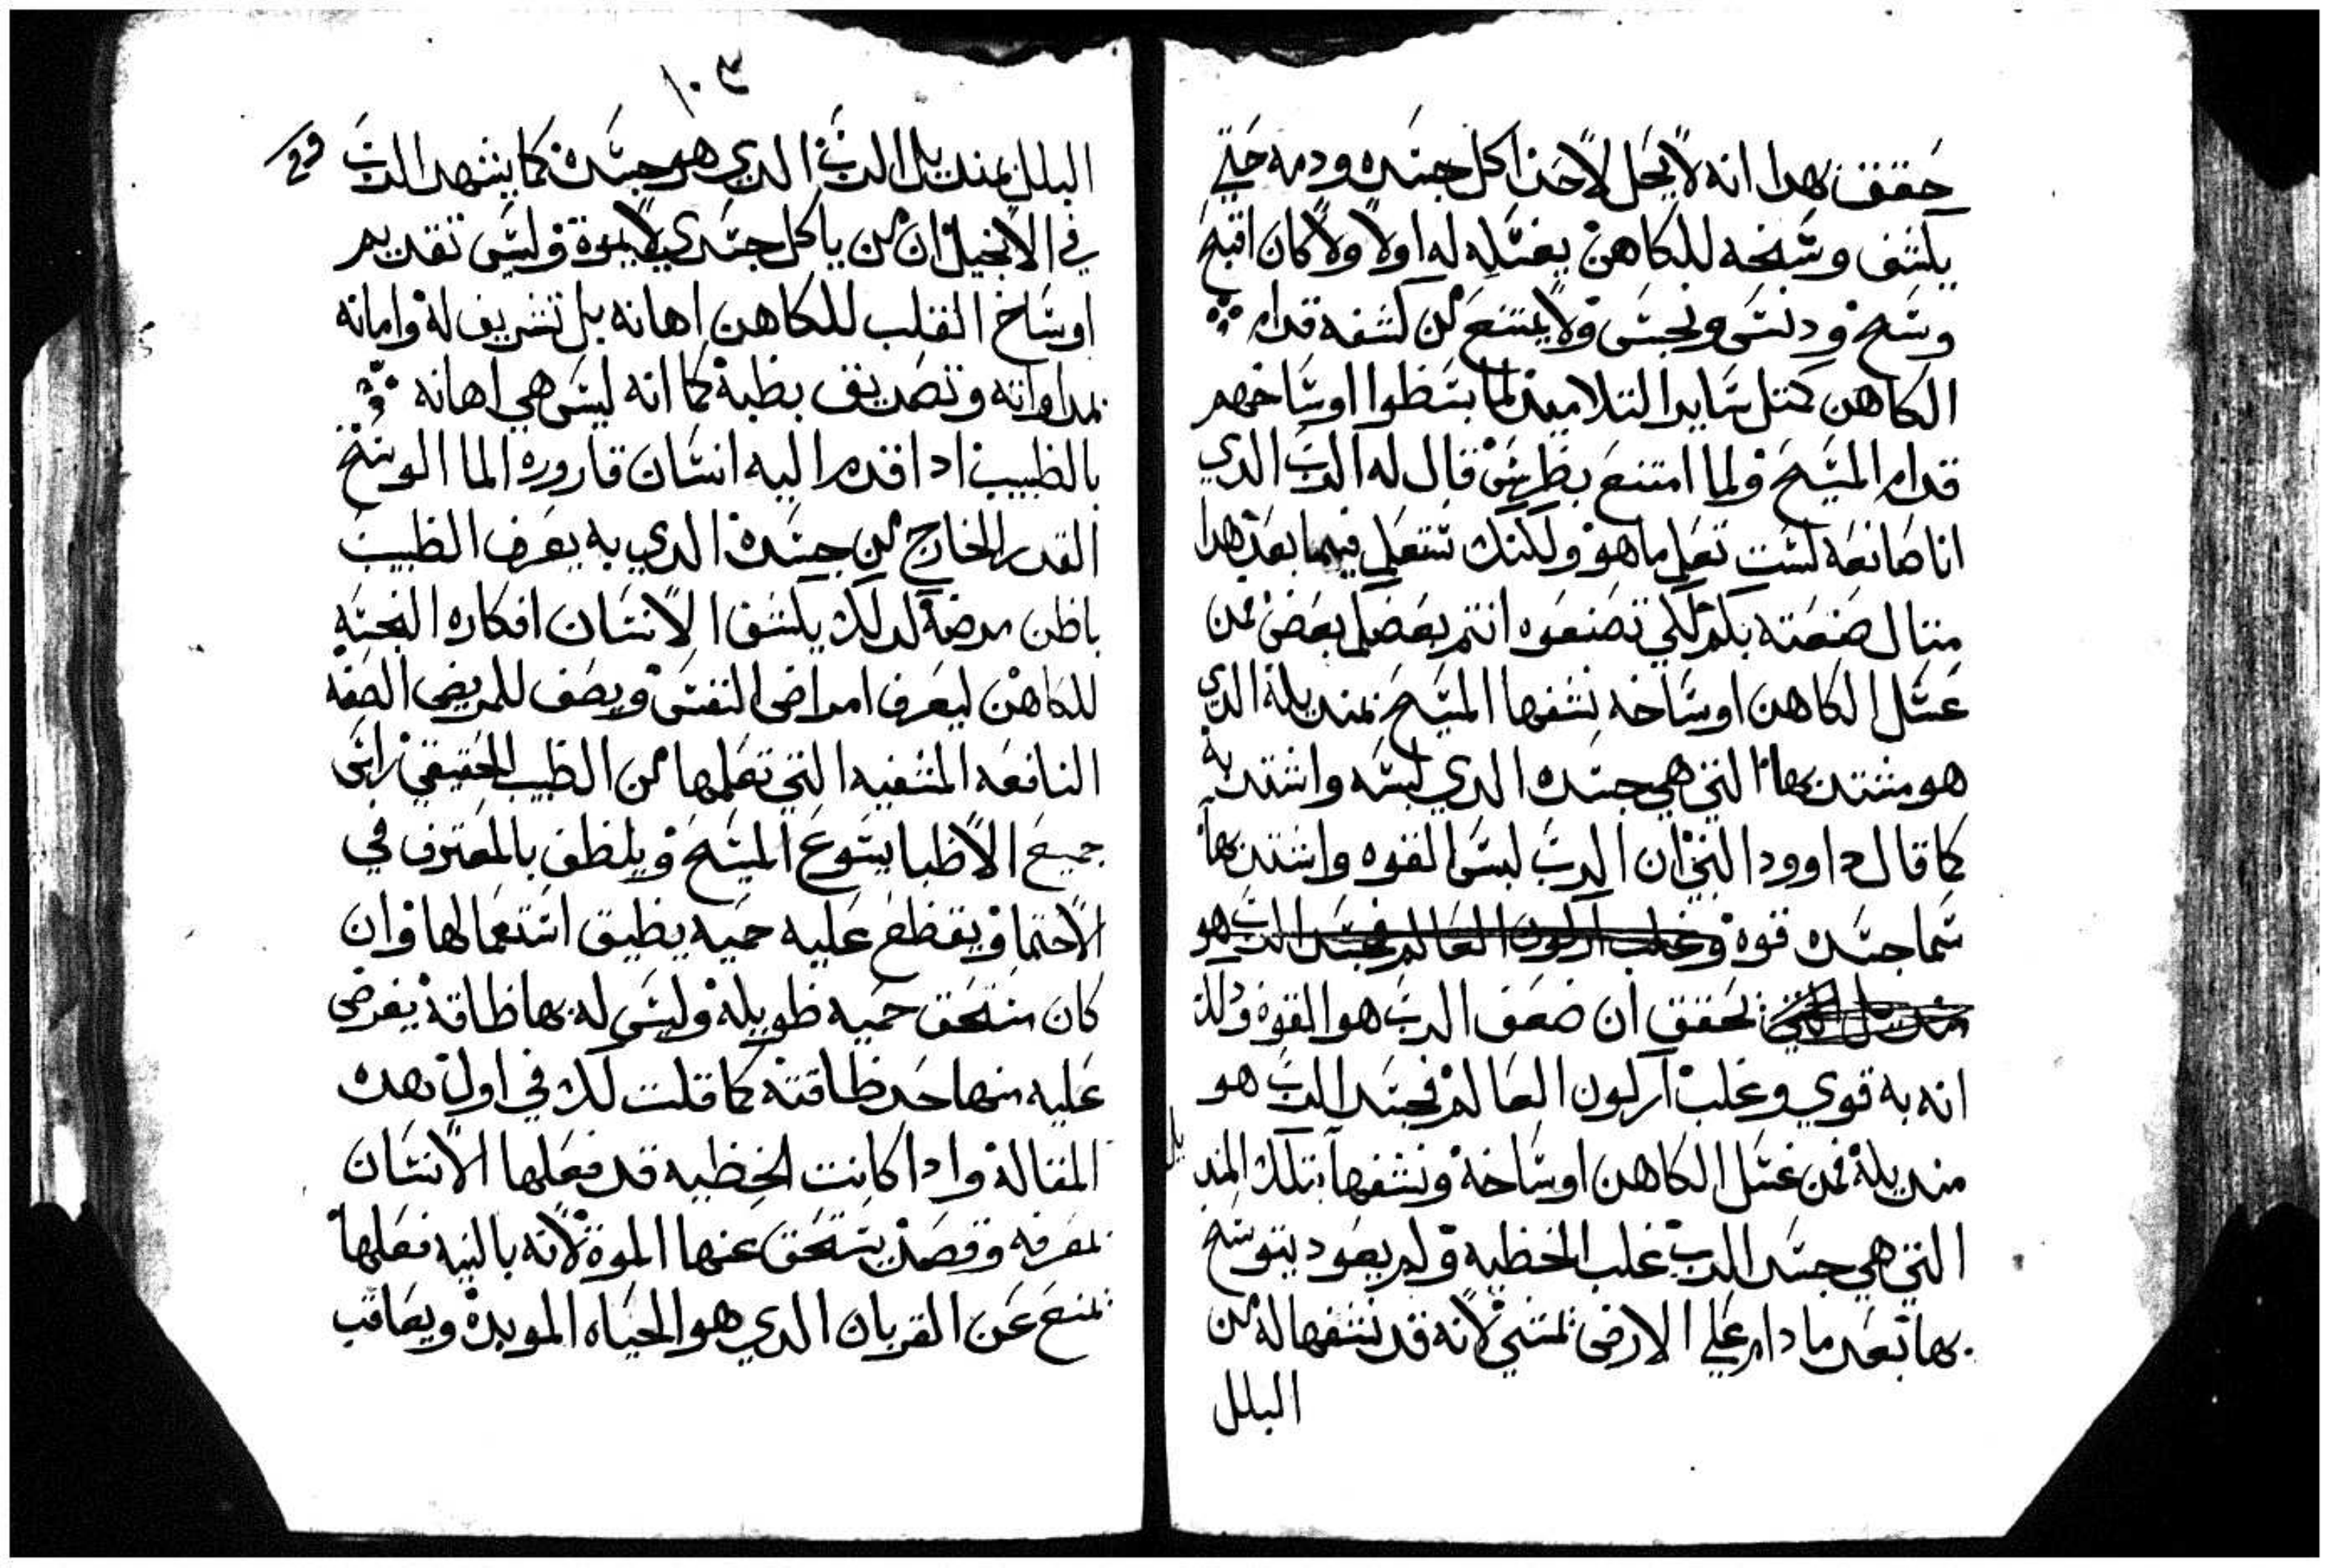 حقق بهدا انه لا يحل لاحد اكل جسده ودمه حتي
يكشف وسخه للكاهن يغسله له اولا ولا كان اقبح
وسخ ودنس ونجس ولا يمتنع من كشفه قدام
الكاهن كمتل ساير التلاميد لما بسطوا اوساخهم
قدام المسيح ولما امتنع بطرس قال له الرب الدي
انا صانعه لست تعلم ما هو ولكنك ستعلم فيما بعد هدا
متال صنعته بكم لكي تصنعوه انتم بعضكم بعض فمن
غسل الكاهن اوساخه نشفها المسيح بمنديله الدي
هو متشد بها التي هي جسده الدي لبسه واشتد به
كما قال داوود النبي ان الرب لبس القوه واشتد بها
سما جسده قوة وغلب اركون العالم فجسد الرب هو
تحقق ان ضعف الرب هو القوه ولد
انه به قوي وغلب اركون العالم فجسد الرب هو
منديله فمن غسل الكاهن اوساخه ونشفها بتلك المنديل
التي هي جسد الرب غلب الخطيه ولم يعود يتوسخ
بها بعد ما دام علي الارض يمشي لانه قد نشفها له من
البلل
١٠٣
البلل بمنديل الرب الدي هو جسده كما يشهد الرب
في الانجيل ان من ياكل جسدي لا يموة وليس تقديم
اوساخ القلب للكاهن اهانه بل تشريف له وامانه
بمداواته وتصديق بطبه كما انه ليس هي اهانه
بالطبيب ادا قدم اليه انسان قارورة الما الوسخ
القدر الخارج من جسده الدي به يعرف الطبيب
باطن مرضه لدلك يكشف الانسان افكاره النجسه
للكاهن ليعرف امراض النفس ويصف للمريض الصفه
النافعه المشفيه التي تعلمها من الطبيب الحقيقي راس
جميع الاطبا يسوع المسيح ويلطف بالمعترف في
الاحتما ويقطع عليه حميه يطيق استعمالها وان
كان مستحق حميه طويلة وليس له بها طاقة يفرض
عليه منها حد طاقته كما قلت لك في اول هده
المقالة وادا كانت الخطيه قد فعلها الانسان
بمعرفه وقصد يستحق عنها الموة لانه بالنيه فعلها
يمنع عن القربان الدي هو الحياه الموبدة ويعاقب